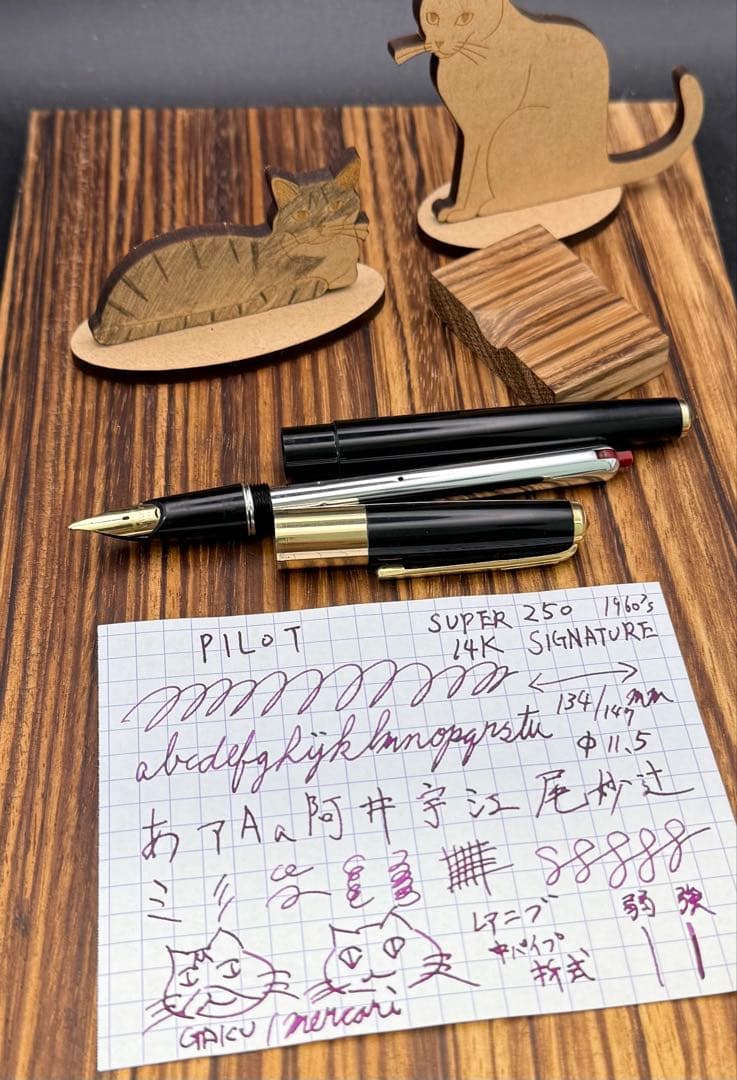 PILOT SUPER 250 1960's
14K SIGNATURE
134/147mm
abcdefghijklmnopqrstu
φ11.5
あアAa阿井宇江尾妙辻
レアニブ 弱 強
GAKU/mercari